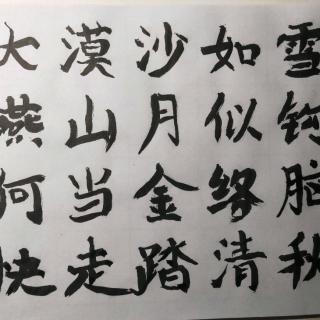 大漠沙如雪
燕山月似钩
何当金络脑
快走踏清秋